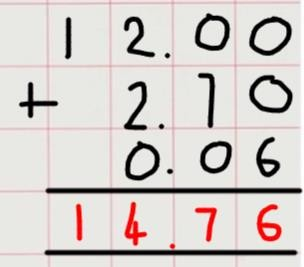 12.00
+ 2.70
0.06
14.76